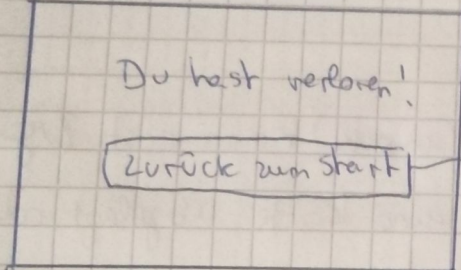 Du hast verloren!
Zurück zum Start